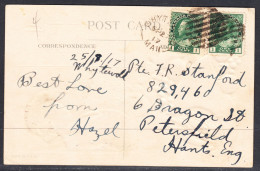 POST CARD
CORRESPONDENCE
25/9/17
Whytewold
Best Love
from
Hazel
Pte. F.R. Stanford
829,460
6 Dragon St
Petersfield
Hants. Eng
1 1